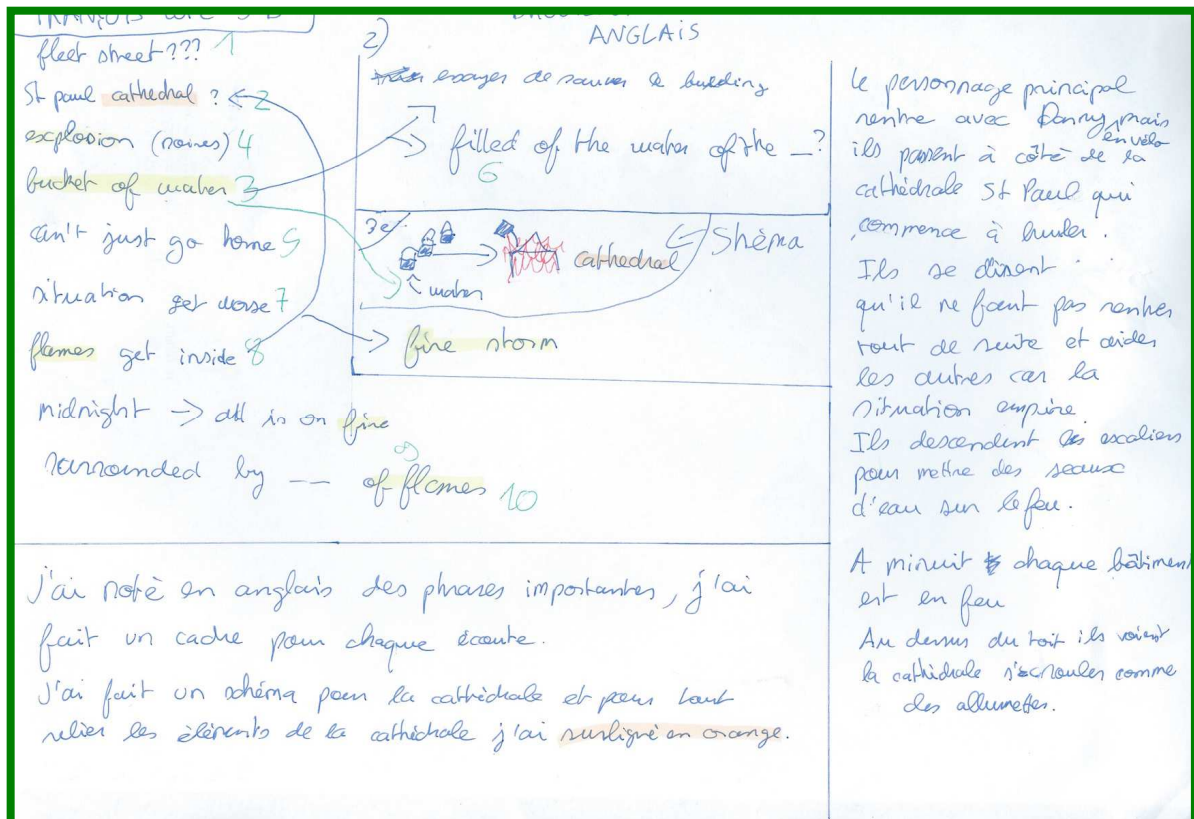 ANGLAIS
fleet street ??? 1
St paul cathedral ? 2
explosion (noises) 4
bucket of water 3
can't just go home 5
situation get worse 7
flames get inside 8
midnight → all is on fire
9
surrounded by __ of flames 10
2)
essayer de sauver le building
→ filled of the water of the __ ?
6
3e
cathedral
Shéma
water
→ fire storm
J'ai noté en anglais des phrases importantes, j'ai
fait un cadre pour chaque écoute.
J'ai fait un schéma pour la cathédrale et pour tout
relier les éléments de la cathédrale j'ai surligné en orange.
le personnage principal
rentre avec Danny, mais
en vélo
ils passent à côté de la
cathédrale St Paul qui
commence à bruler.
Ils se disent
qu'il ne faut pas rentrer
tout de suite et aider
les autres car la
situation empire.
Ils descendent les escaliers
pour mettre des seaux
d'eau sur le feu.
A minuit chaque bâtiment
est en feu
Au dessus du toit ils voient
la cathédrale s'écrouler comme
des allumettes.